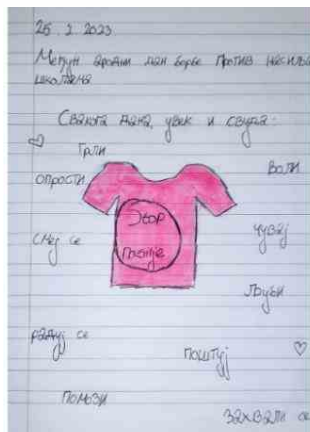 25 2 2023
Међун ародни дан борбе против насиља
школама
Свакога дана, увек и свуда:
Грли
Воли
опрости
Збор
чувај
смеј се
љуби
радуј се
поштуј
помози
захвали се